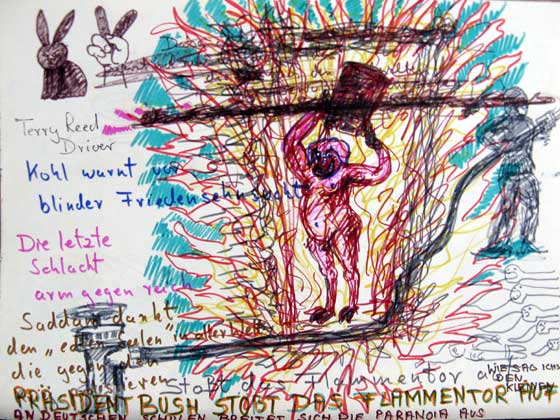 Terry Reed
Driver
Kohl warnt vor
blinder Friedenssehnsucht
Die letzte
Schlacht
arm gegen reich
Saddam dankt
den "edlen Seelen" in aller Welt
die gegen den
Stößt das Flammentor auf
WIE SAG ICHS
DEN
KLEINEN
PRÄSIDENT BUSH STÖßT DAS FLAMMENTOR AUF
AN DEUTSCHEN SCHULEN BREITET SICH DIE PARANOIA AUS